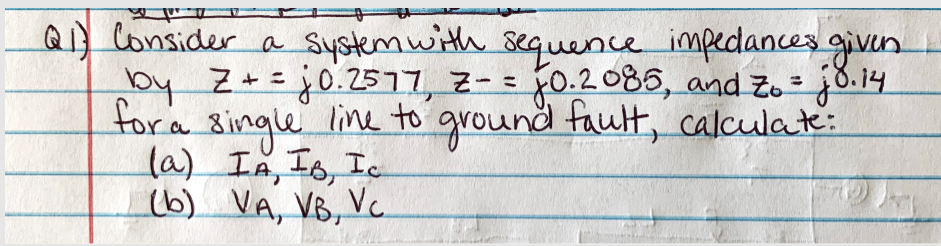 Q1) Consider a system with sequence impedances given
by Z+ = j0.2577, Z- = j0.2085, and Z₀ = j0.14
for a single line to ground fault, calculate:
(a) IA, IB, IC
(b) VA, VB, VC